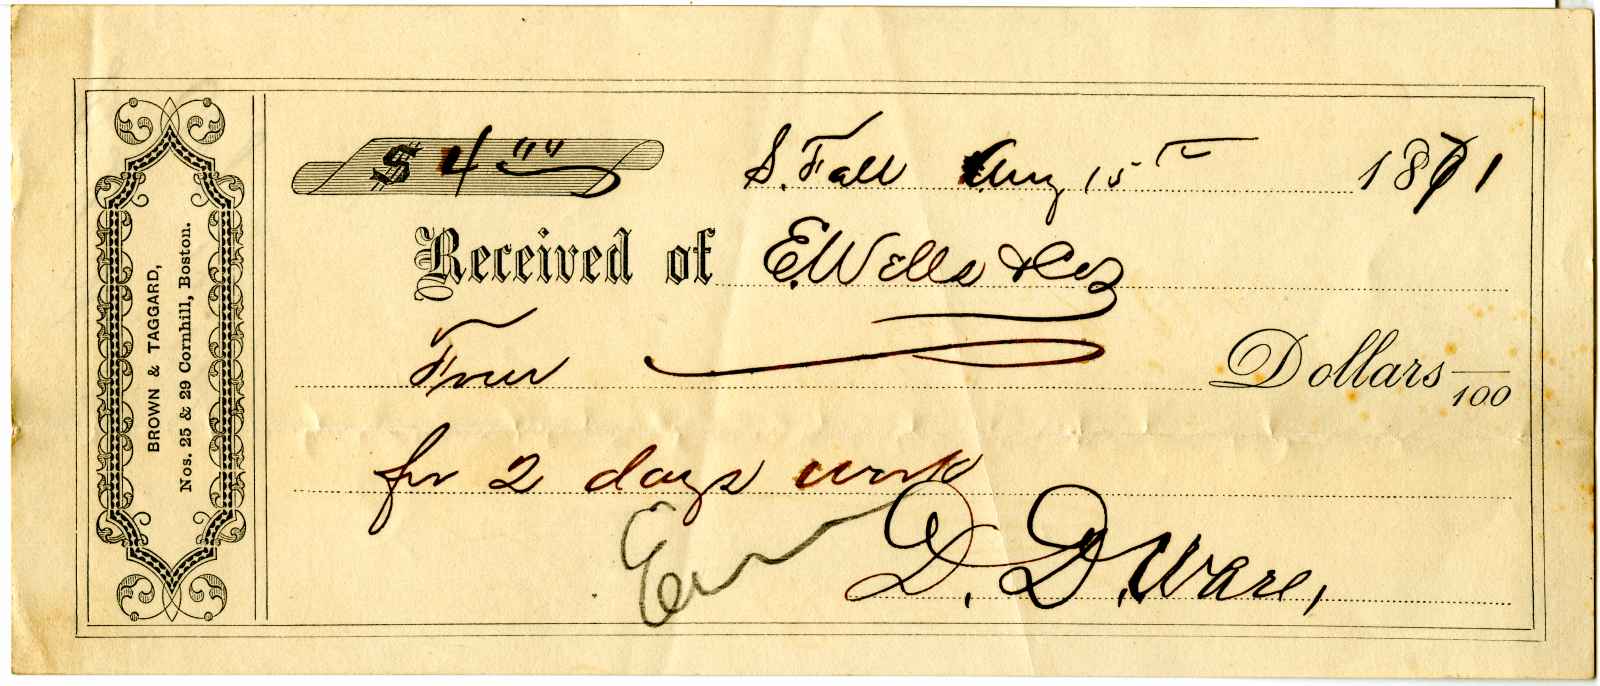 BROWN & TAGGARD,
Nos. 25 & 29 Cornhill, Boston.
$ 4 "" S. Fall Aug 15th 1871
Received of E. Wells & Co
Four Dollars /100
for 2 days work
D. D. Ware,